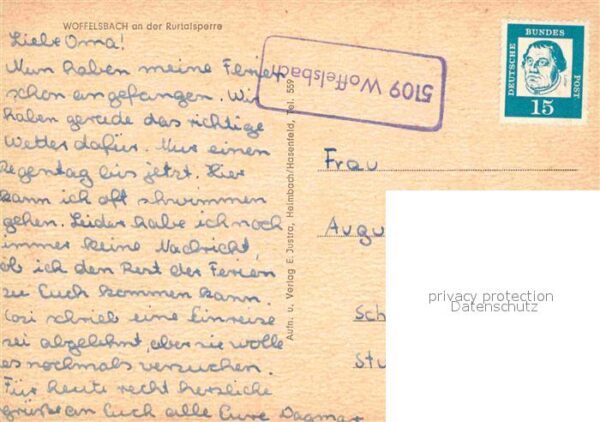 WOFFELSBACH an der Rurtalsperre
Liebe Oma!
Nun haben meine Ferien
schon angefangen. Wir
haben gerade das richtige
Wetter dafür. Nur einen
Regentag bis jetzt. Hier
kann ich oft schwimmen
gehen. Leider habe ich noch
immer keine Nachricht,
ob ich den Rest der Ferien
zu Euch kommen kann.
schrieb eine Einreise
sei abgelehnt, aber sie wolle
es nochmals versuchen.
Für heute recht herzliche
Grüße an Euch alle Eure Dagmar
Aufn. u. Verlag E. Justra, Heimbach/Hasenfeld, Tel. 559
5109 Woffelsbach
DEUTSCHE BUNDESPOST
15
Frau
Augu
Sch
Stu
privacy protection
Datenschutz